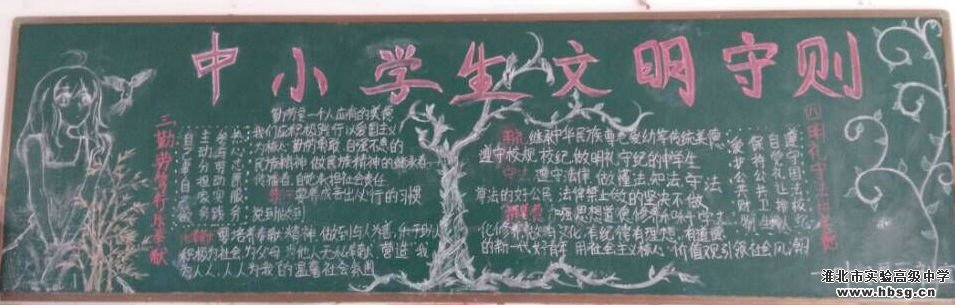 中小学生文明守则
三 勤劳笃行乐奉献
自己事自己做
主动分担家务
参与劳动实践
热心志愿服务
勤劳是一个人应有的美德
我们应积极践行以爱国主义
为核心 勤劳勇敢 自强不息的
民族精神 做民族精神的继承者
传播者 自觉承担社会责任
要养成言出必行的习惯
说到做到
要培养奉献精神 做到与人为善 乐于助人
积极为社会 为父母 为他人无私奉献 营造 我
为人人 人人为我的温馨社会氛围
继承中华民族尊老爱幼等传统美德
遵守校规 校纪 做明礼守纪的中学生
遵守法律 做懂法 知法 守法
尊法的好公民 法律禁止做的坚决不做
加强思想道德修养
的新一代好青年 用社会主义核心价值观引领社会风潮
四 明礼守法讲美德
遵守国法校纪
自觉礼让排队
保持公共卫生
爱护公共财物
淮北市实验高级中学
www.hbsg.cn